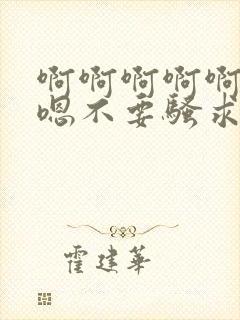 啊啊啊啊啊
嗯不要骚求
霍建华